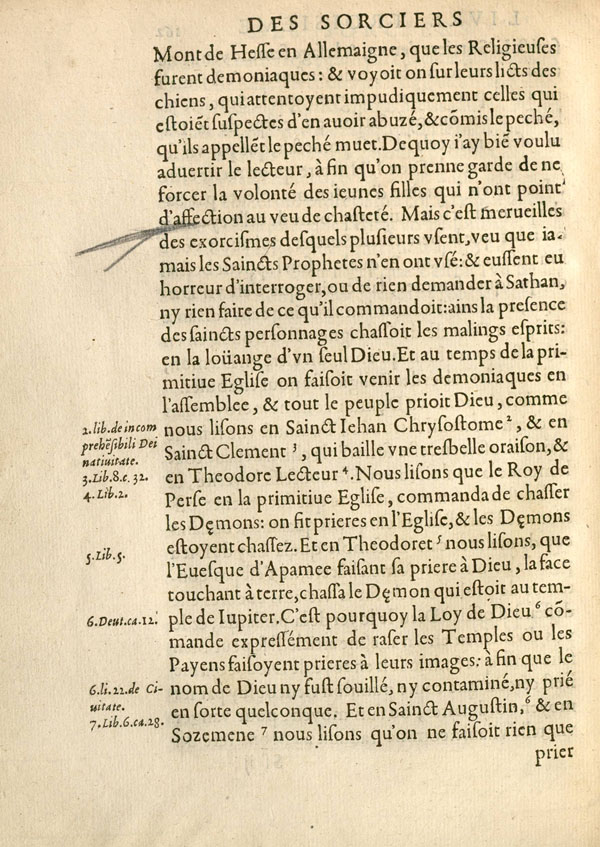 DES SORCIERS
Mont de Heſſe en Allemaigne, que les Religieuſes
furent demoniaques: & voyoit on ſur leurs licts des
chiens, qui attentoyent impudiquement celles qui
eſtoiẽt ſuſpectes d'en auoir abuzé, & cõmis le peché,
qu'ils appellẽt le peché muet. Dequoy i'ay biẽ voulu
aduertir le lecteur, à fin qu'on prenne garde de ne
forcer la volonté des ieunes filles qui n'ont point
d'affection au veu de chaſteté. Mais c'eſt merueilles
des exorciſmes deſquels pluſieurs vſent, veu que ia-
mais les Saincts Prophetes n'en ont vſé: & euſſent eu
horreur d'interroger, ou de rien demander à Sathan,
ny rien faire de ce qu'il commandoit: ains la preſence
des ſaincts perſonnages chaſſoit les malings eſprits:
en la loüange d'vn ſeul Dieu. Et au temps de la pri-
mitiue Egliſe on faiſoit venir les demoniaques en
l'aſſemblee, & tout le peuple prioit Dieu, comme
nous liſons en Sainct Iehan Chryſoſtome ², & en
Sainct Clement ³, qui baille vne treſbelle oraiſon, &
en Theodore Lecteur ⁴. Nous liſons que le Roy de
Perſe en la primitiue Egliſe, commanda de chaſſer
les Dęmons: on fit prieres en l'Egliſe, & les Dęmons
eſtoyent chaſſez. Et en Theodoret ⁵ nous liſons, que
l'Eueſque d'Apamee faiſant ſa priere à Dieu, la face
touchant à terre, chaſſa le Dęmon qui eſtoit au tem-
ple de Iupiter. C'eſt pourquoy la Loy de Dieu ⁶ cõ-
mande expreſſément de raſer les Temples ou les
Payens faiſoyent prieres à leurs images: à fin que le
nom de Dieu ny fuſt ſouillé, ny contaminé, ny prié
en ſorte quelconque. Et en Sainct Auguſtin, ⁶ & en
Sozemene ⁷ nous liſons qu'on ne faiſoit rien que
prier
2. lib. de incom
prehẽſibili Dei
natiuitate.
3. Lib. 8. c. 32.
4. Lib. 2.
5. Lib. 5.
6. Deut. ca. 12.
6. li. 22. de Ci-
uitate.
7. Lib. 6. ca. 28.